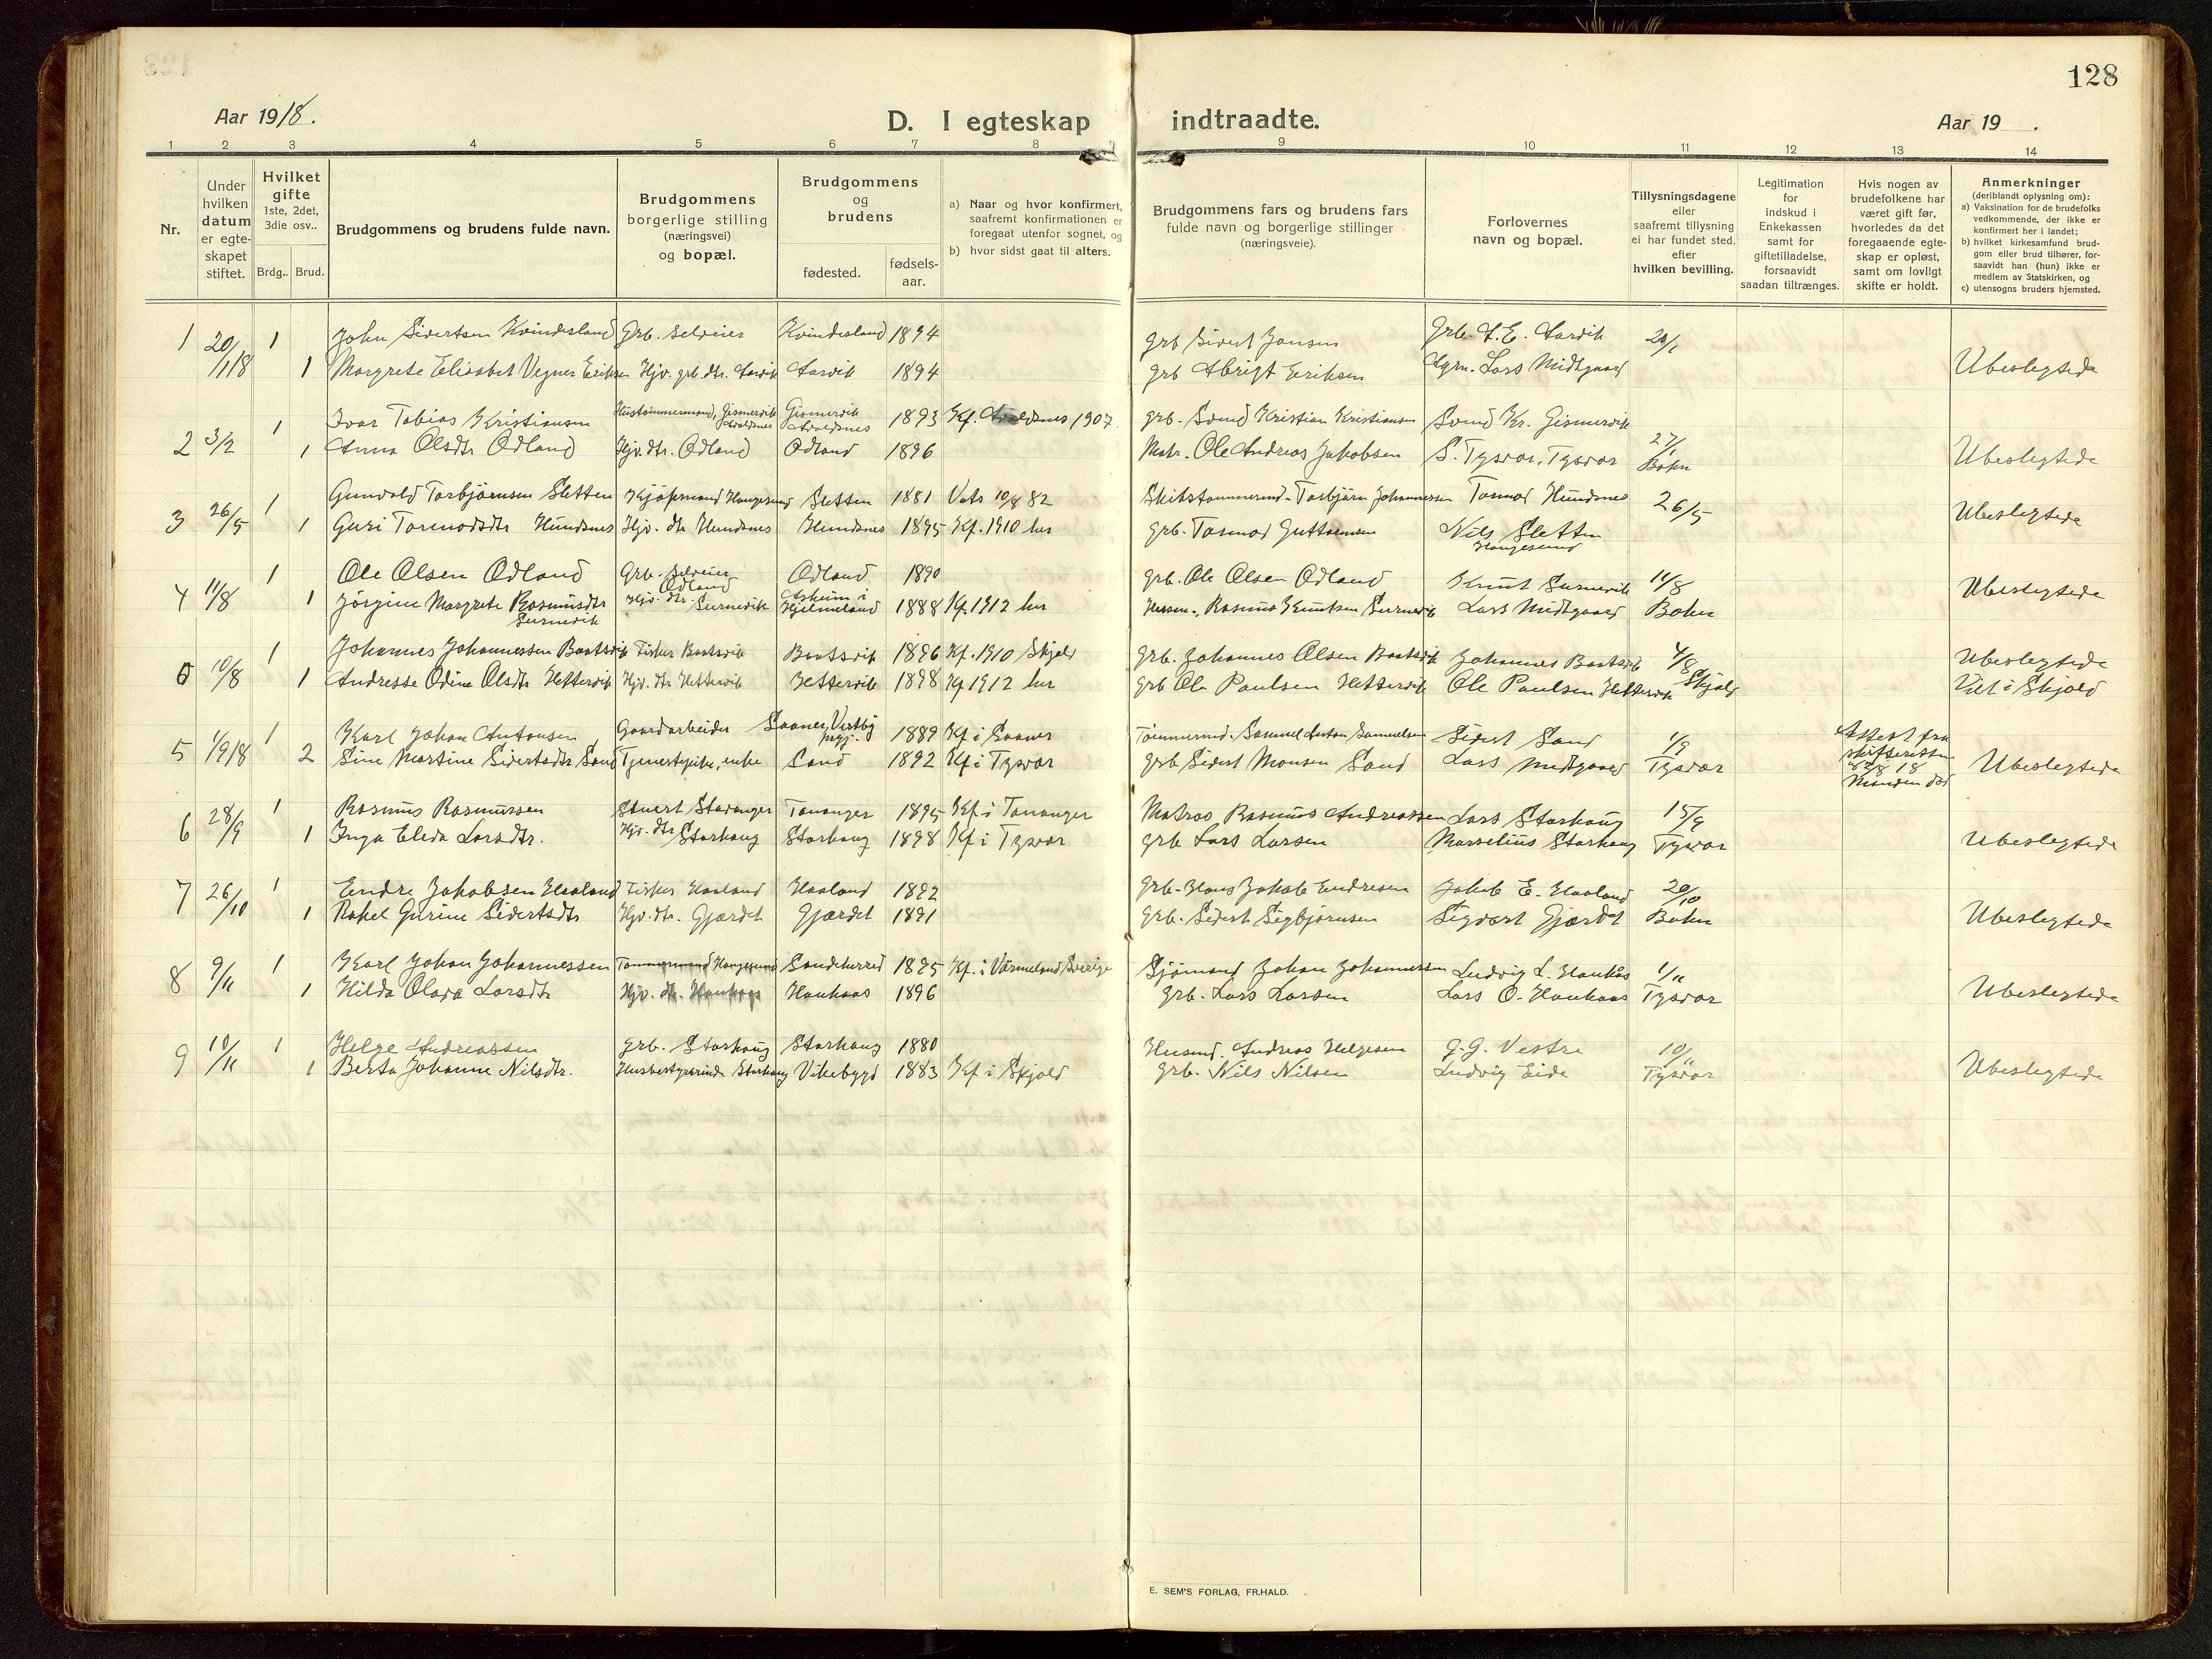 128
Aar 1918.
D. I egteskap indtraadte.
Aar 19 .
1 2 3 4 5 6 7 8 9 10 11 12 13 14
Nr.
Under hvilken datum er egteskapet stiftet.
Hvilket gifte 1ste, 2det, 3die osv..
Brdg.. Brud.
Brudgommens og brudens fulde navn.
Brudgommens borgerlige stilling (næringsvei) og bopæl.
Brudgommens og brudens
fødested.
fødselsaar.
a) Naar og hvor konfirmert, saafremt konfirmationen er foregaat utenfor sognet, og
b) hvor sidst gaat til alters.
Brudgommens fars og brudens fars fulde navn og borgerlige stillinger (næringsveie).
Forlovernes navn og bopæl.
Tillysningsdagene eller saafremt tillysning ei har fundet sted, efter hvilken bevilling.
Legitimation for indskud i Enkekassen samt for giftetilladelse, forsaavidt saadan tiltrænges.
Hvis nogen av brudefolkene har været gift før, hvorledes da det foregaaende egteskap er opløst, samt om lovligt skifte er holdt.
Anmerkninger (deriblandt oplysning om):
a) Vaksination for de brudefolks vedkommende, der ikke er konfirmert her i landet;
b) hvilket kirkesamfund brudgom eller brud tilhører, forsaavidt han (hun) ikke er medlem av Statskirken, og
c) utensogns bruders hjemsted.
1 20/1 18 1 John Sivertsen Kvindesland Grb. selveier Kvindesland 1894 grb Sivert Jansen Grb. A. E. Aarvik 20/1
1 Margrete Elisabet Vegner Eriksen Hjv. grb. dtr. Aarvik Aarvik 1894 grb Abrigt Eriksen Agrn. Lars Midtgaard Ubeslegtede
1 Ivar Tobias Kristiansen Hustømmermand, Gismervik Avaldsnes Gismervik Avaldsnes 1893 Kf. Avaldsnes 1907. grb. Svend Kristian Kristiansen Svend Kr. Gismervik
2 3/2 1 Anna Olsdtr Ødland Hjv. dtr. Ødland Ødland 1896 Matr. Ole Andreas Jakobsen S. Tysvær, Tysvær 27/1 Bokn Ubeslegtede
1 Gunvald Torbjørnsen Sletten Kjøpmand Haugesund Sletten 1881 Vats 10/8 82 Skibstømmermd. Torbjørn Johannessen Tormod Hundsnes 26/5
3 26/5 1 Guri Tormodsdtr Hundsnes Hjv. dtr Hundsnes Hundsnes 1895 Kf. 1910 her grb. Tormod Guttormsen Nils Sletten Haugesund Ubeslegtede
1 Ole Olsen Ødland Grb. selveier Ødland Ødland 1890 grb. Ole Olsen Ødland Knut Surnevik 11/8
4 11/8 1 Jørgine Margrete Rasmusdtr Surnevik Hjv. dtr. Surnevik Askeim i Hjelmeland 1888 Kf 1912 her Husm. Rasmus Knutsen Surnevik Lars Midtgaard Bokn Ubeslegtede
1 Johannes Johannessen Baatsvik Fisker Baatsvik Baatsvik 1896 Kf. 1910 Skjold grb. Johannes Olsen Baatsvik Johannes Baatsvik 4/8 Skjold Ubeslegtede
0 10/8 1 Andresse Odine Olsdtr Hettervik Hjv. dtr Hettervik Hettervik 1898 Kf 1912 her grb Ole Paulsen Hettervik Ole Paulsen Hettervik Viet i Skjold
1 Karl Johan Antonsen Gaardarbeider Saaner, Vestby prgj. 1889 Kf i Saaner Tømmermd. Samuel Anton Samuelsen Sivert Sand 1/9 Attest fra skifteretten 8/8 18 Manden død
5 1/9 18 2 Sine Martine Sivertsdtr Sand Tjenestepike, enke Sand 1892 Kf i Tysvær grb Sivert Monsen Sand Lars Midtgaard Tysvær Ubeslegtede
1 Rasmus Rasmussen Stuert Stavanger Tananger 1895 Kf i Tananger Matros Rasmus Andreassen Lars Storhaug 15/9
6 28/9 1 Inga Elida Larsdtr. Hjv. dtr Storhaug Storhaug 1898 Kf i Tysvær grb Lars Larsen Marselius Storhaug Tysvær Ubeslegtede
7 26/10 1 Endre Jakobsen Haaland Fisker Haaland Haaland 1892 grb. Hans Jakob Endresen Jakob E. Haaland 20/10
1 Rakel Gurine Sivertsdtr Hjv. dtr. Gjærdet Gjærdet 1891 grb. Sivert Sigbjørnsen Sigvart Gjærdet Bokn Ubeslegtede
8 9/11 1 Karl Johan Johannessen Tømmermand Haugesund Sandeherred 1895 Kf. i Värmeland Sverige Sjømand Johan Johannessen Ludvig L. Haukås 1/11
1 Hilda Olava Larsdtr Hjv. dtr. Haukaas Haukaas 1896 grb. Lars Larsen Lars O. Haukaas Tysvær Ubeslegtede
9 10/11 1 Helge Andreassen grb. Storhaug Storhaug 1880 Husmd. Andreas Helgesen G. G. Vestre 10/11
1 Berta Johanne Nilsdtr. Husbestyrerinde Storhaug Vikebygd 1883 Kf i Skjold grb. Nils Nilsen Ludvig Eide Tysvær Ubeslegtede
E. SEM'S FORLAG, FR.HALD.